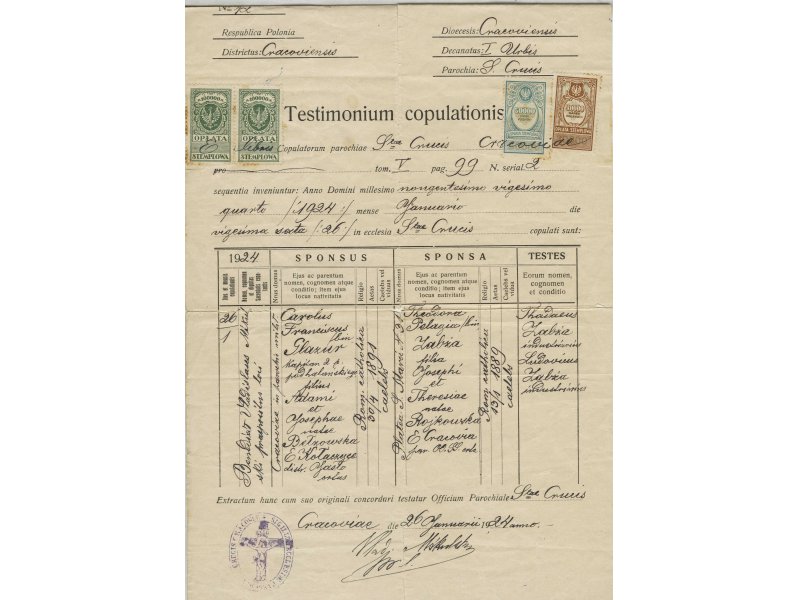 Respublica Polonia
Districtus: Cracoviensis
Dioecesis: Cracoviensis
Decanatus: I Urbis
Parochia: S. Crucis
100000
OPŁATA
STEMPLOWA
100000
OPŁATA
STEMPLOWA
OPŁATA STEMPLOWA
OPŁATA STEMPLOWA
Testimonium copulationis
E Libris Copulatorum parochiae Stae Crucis Cracoviae
pro tom. V pag. 99 N. serial. 2
sequentia inveniuntur: Anno Domini millesimo nongentesimo vigesimo
quarto /:1924:/ mense Januario die
vigesima sexta /:26:/ in ecclesia Stae Crucis copulati sunt:
1924
SPONSUS
SPONSA
TESTES
Nrus domus
Ejus ac parentum
nomen, cognomen atque
conditio; item ejus
locus nativitatis
Religio
Aetas
Caelebs vel
viduus
Nrus domus
Ejus ac parentum
nomen, cognomen atque
conditio; item ejus
locus nativitatis
Religio
Aetas
Caelebs vel
vidua
Eorum nomen,
cognomen
et conditio
26
1
Benedixit Vladislaus
Cracoviae in
Carolus
Franciscus /bin
Glazur
Kapitan 2 p
podhalańskiego
filius
Adami
et
Josephae
natae
Betkowska
E Kołaczyce
distr. Jasło
Rom. catholica
30/4 1891
caelebs
Platea S. Marci N 31
Theodora
Pelagia /bin
Zabża
filia
Josephi
et
Theresiae
natae
Rojkowska
E Cracovia
Rom. catholica
13/1 1889
caelebs
Thadaeus
Zabża
industrius
Ludovicus
Zabża
industrius
Extractum hunc cum suo originali concordari testatur Officium Parochiale Stae Crucis
Cracoviae die 26 Januarii 1924 anno.